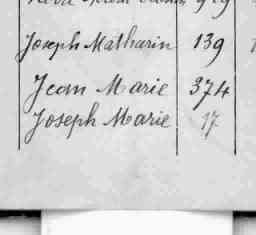 Joseph Matharin 139
Jean Marie 374
Joseph Marie 17